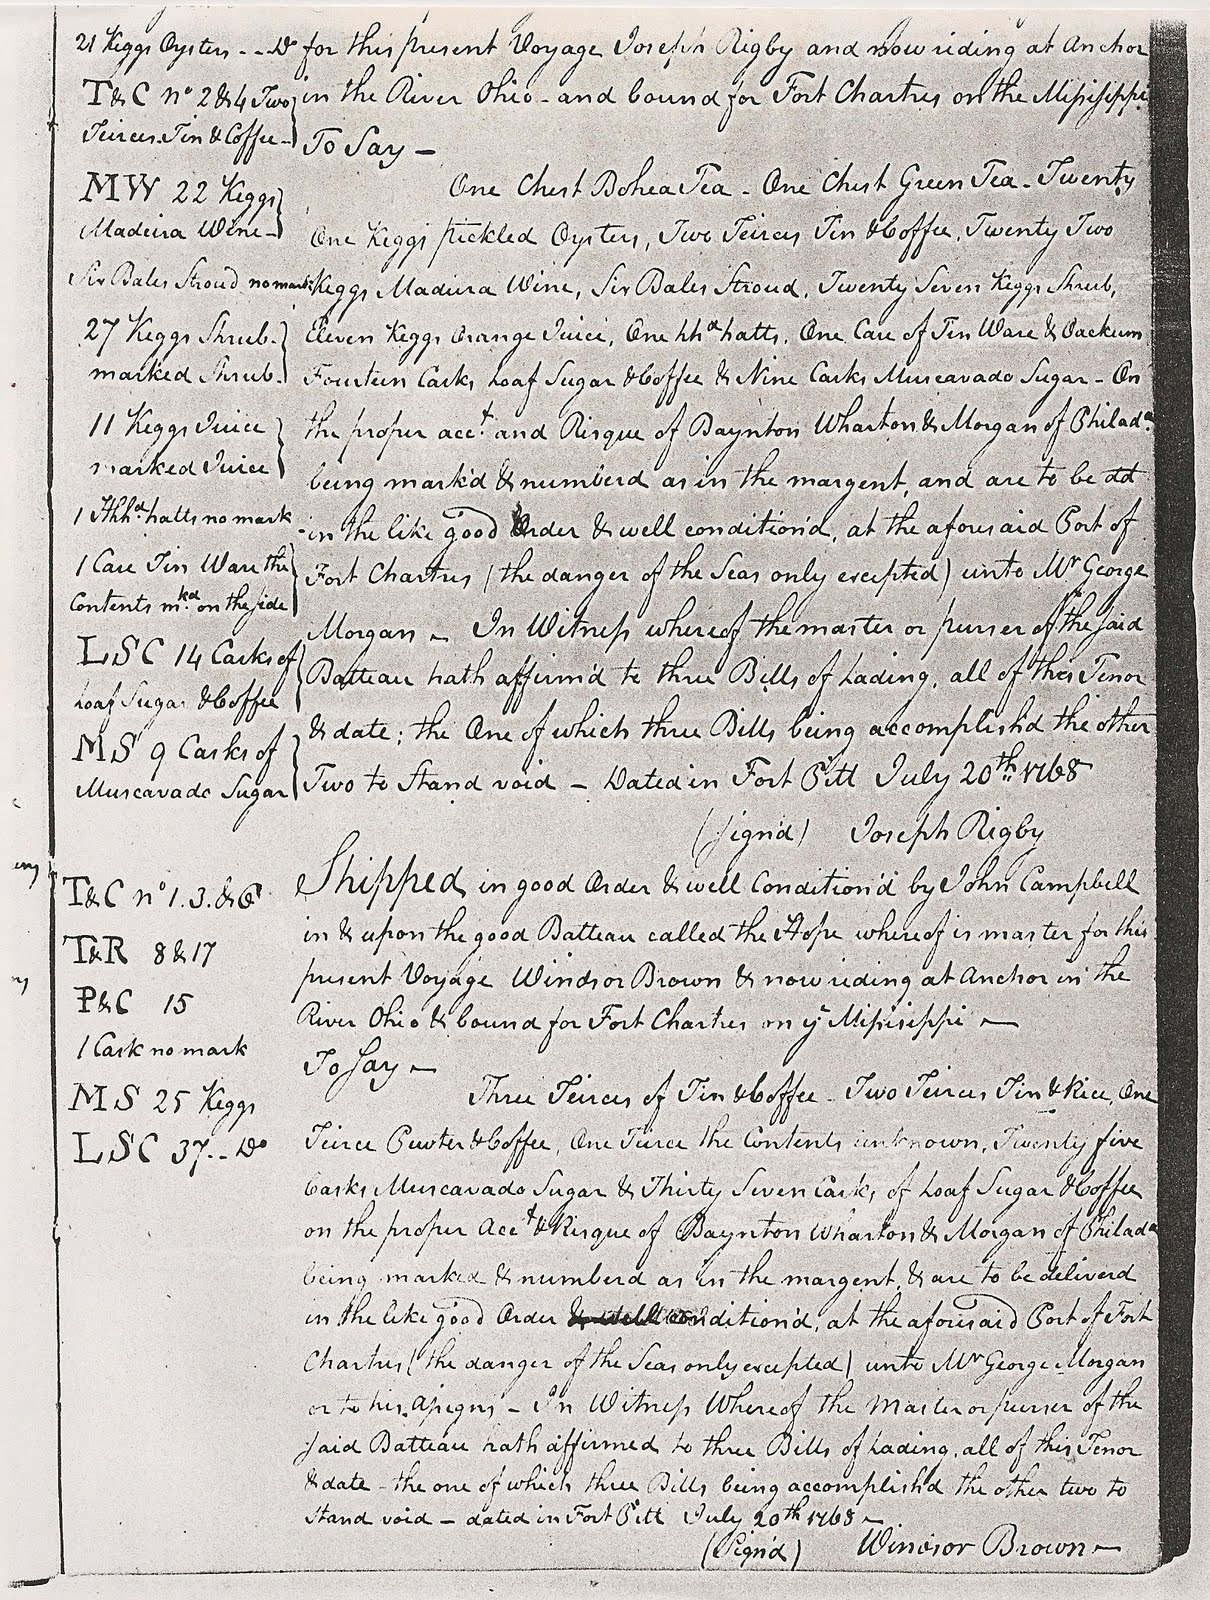 21 Keggs Oysters - - Do
T&C no 2 & 4 Two
Teirces Tin & Coffee -
MW 22 Keggs
Madeira Wine -
Six Bales Stroud no mark
27 Keggs Shrub -
marked Shrub -
11 Keggs Juice
marked Juice
1 Hhd hatts no mark
1 Case Tin Ware the
Contents mkd on the side
LSC 14 Casks of
Loaf Sugar & Coffee
MS 9 Casks of
Muscavado Sugar
for this present Voyage Joseph Rigby and now riding at Anchor
in the River Ohio - and bound for Fort Chartres on the Missisippi
To Say -
One Chest Bohea Tea - One Chest Green Tea - Twenty
One Keggs pickled Oysters, Two Teirces Tin & Coffee, Twenty Two
Keggs Madiera Wine, Six Bales Stroud, Twenty Seven Keggs Shrub,
Eleven Keggs Orange Juice, One hhd hatts, One Case of Tin Ware & Oackum
Fourteen Casks Loaf Sugar & Coffee & Nine Casks Muscavado Sugar - On
the proper acct. and Risque of Baynton Wharton & Morgan of Philada.
being mark'd & numberd as in the margent, and are to be dd
in the like good Order & well condition'd, at the aforesaid Port of
Fort Chartres (the danger of the Seas only excepted) unto Mr George
Morgan - In Witness whereof the master or purser of the said
Batteau hath affirm'd to three Bills of Lading, all of this Tenor
& date; the One of which three Bills being accomplish'd the other
Two to Stand void - Dated in Fort Pitt July 20th 1768
(Sign'd) Joseph Rigby
T&C no 1. 3. & 6
T&R 8 & 17
P&C 15
1 Cask no mark
MS 25 Keggs
LSC 37 - - Do
Shipped in good Order & well Condition'd by John Campbell
in & upon the good Batteau called the Hope whereof is master for this
present Voyage Windsor Brown & now riding at Anchor in the
River Ohio & bound for Fort Chartres on ye Missisippi -
To Say -
Three Teirces of Tin & Coffee - Two Teirces Tin & Rice, One
Teirce Pewter & Coffee, One Teirce the Contents unknown, Twenty five
Casks Muscavado Sugar & Thirty Seven Casks of Loaf Sugar & Coffee
on the proper Acct & Risque of Baynton Wharton & Morgan of Philada
being marked & numberd as in the margent, & are to be deliverd
in the like good Order & well condition'd, at the aforesaid Port of Fort
Chartres (the danger of the Seas only excepted) unto Mr George Morgan
or to his Assigns - In Witness Whereof the Master or purser of the
said Batteau hath affirmed to three Bills of Lading, all of this Tenor
& date - the one of which three Bills being accomplish'd the other two to
Stand void - dated in Fort Pitt July 20th 1768 -
(Sign'd) Windsor Brown -